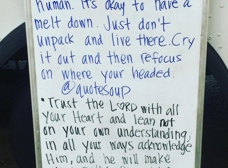 human. It's okay to have a
melt down. Just don't
unpack and live there. Cry
it out and then refocus
on where your headed.
@quotesoup
• Trust the LORD with all
your Heart and lean not
on your own understanding,
in all your ways acknowledge
Him, and he will make